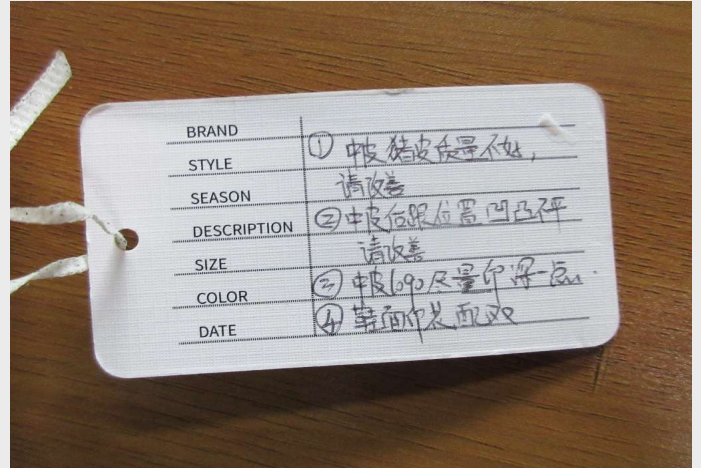 BRAND
STYLE
SEASON
DESCRIPTION
SIZE
COLOR
DATE
① 中皮猪皮质量不好,
请改善
② 中皮后跟位置凹凸不平
请改善
③ 中皮logo尽量印深一点.
④ 鞋面 配双